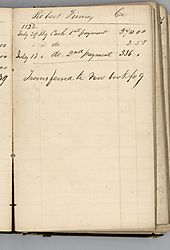 Robert Finney Cr
1852
July 29 By Cash 1st payment 374.00
" " do 2.58
July 13 " do. 2nd payment 336 "
Transferred to New book fo 9